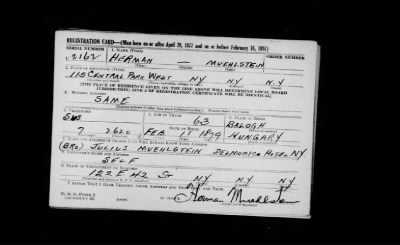 REGISTRATION CARD—(Men born on or after April 28, 1877 and on or before February 16, 1897)
SERIAL NUMBER 1. NAME (Print) ORDER NUMBER
U 2162 HERMAN — MUEHLSTEIN
(First) (Middle) (Last)
2. PLACE OF RESIDENCE (Print)
115 CENTRAL PARK WEST NY NY N.Y
[THE PLACE OF RESIDENCE GIVEN ON THE LINE ABOVE WILL DETERMINE LOCAL BOARD
JURISDICTION; LINE 2 OF REGISTRATION CERTIFICATE WILL BE IDENTICAL]
3. MAILING ADDRESS
SAME
4. TELEPHONE 5. AGE IN YEARS 6. PLACE OF BIRTH
SUS 63 BALOGH
DATE OF BIRTH
7 2620 FEB 11 1879 HUNGARY
7. NAME AND ADDRESS OF PERSON WHO WILL ALWAYS KNOW YOUR ADDRESS
(BRO) JULIUS MUEHLSTEIN DELMONICO HOTEL NY
8. EMPLOYER'S NAME AND ADDRESS
SELF
9. PLACE OF EMPLOYMENT OR BUSINESS
122 E 42 ST NY NY
I AFFIRM THAT I HAVE VERIFIED ABOVE ANSWERS AND THAT THEY ARE TRUE.
D. S. S. Form 1
Herman Muehlstein